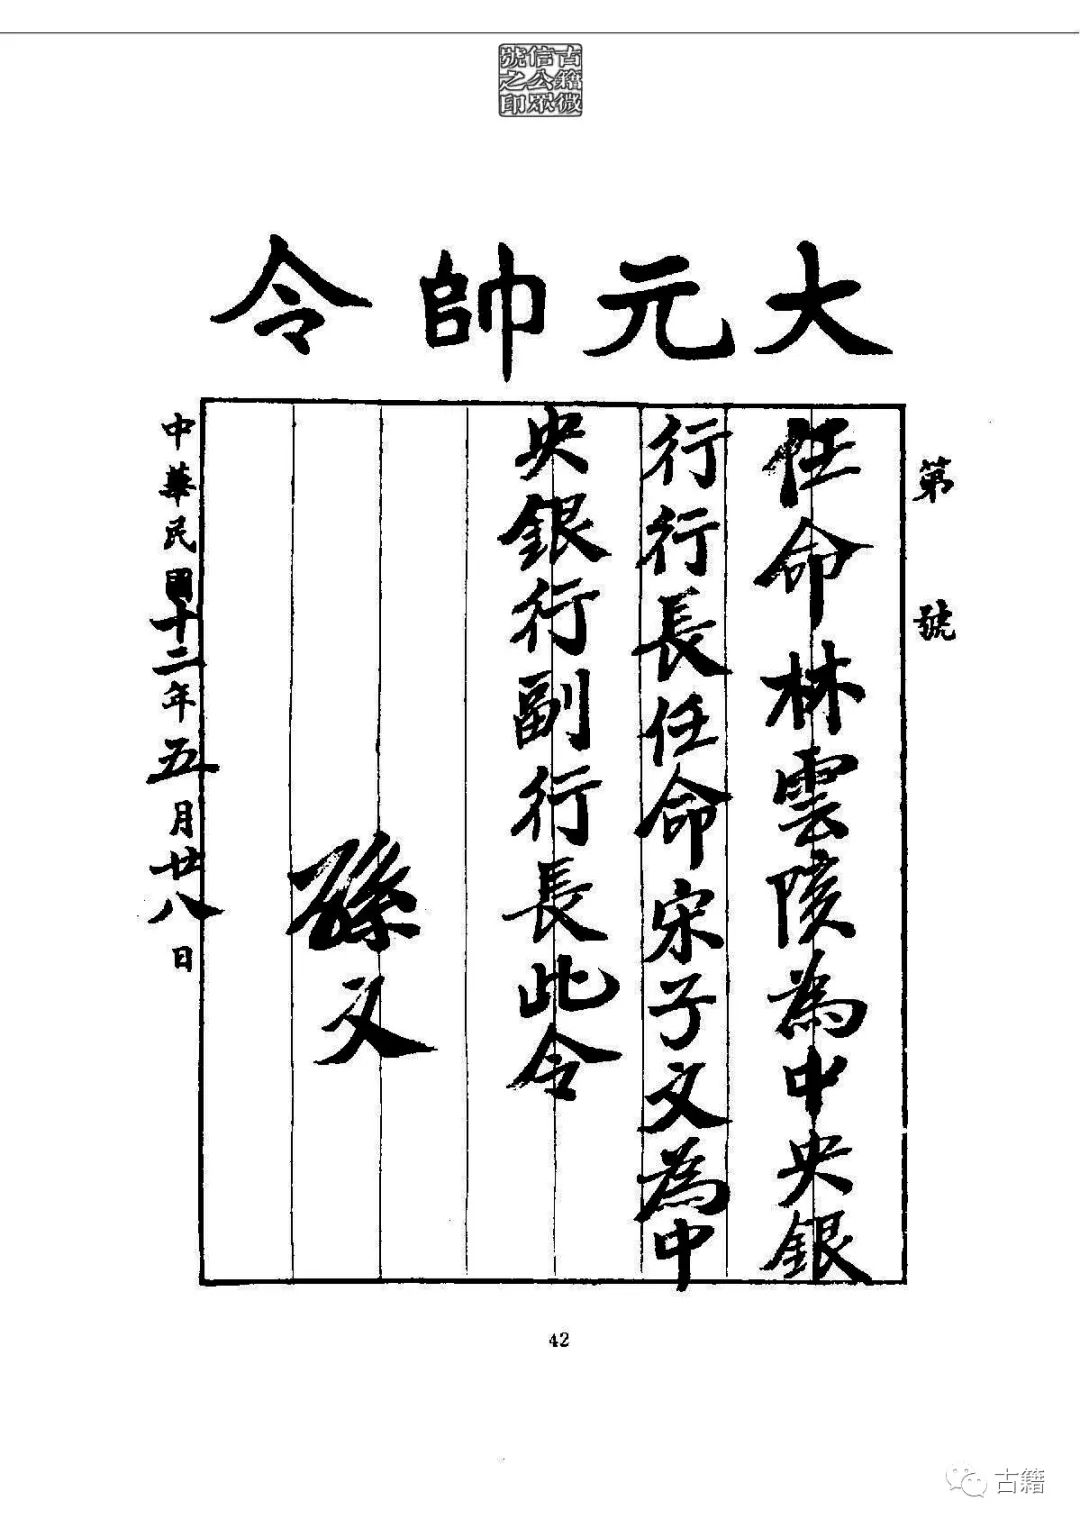 古籍微
信公眾
號之印
大元帥令
第 號
任命林雲陔為中央銀
行行長任命宋子文為中
央銀行副行長此令
孫文
中華民國十二年五月廿八日
42
古籍